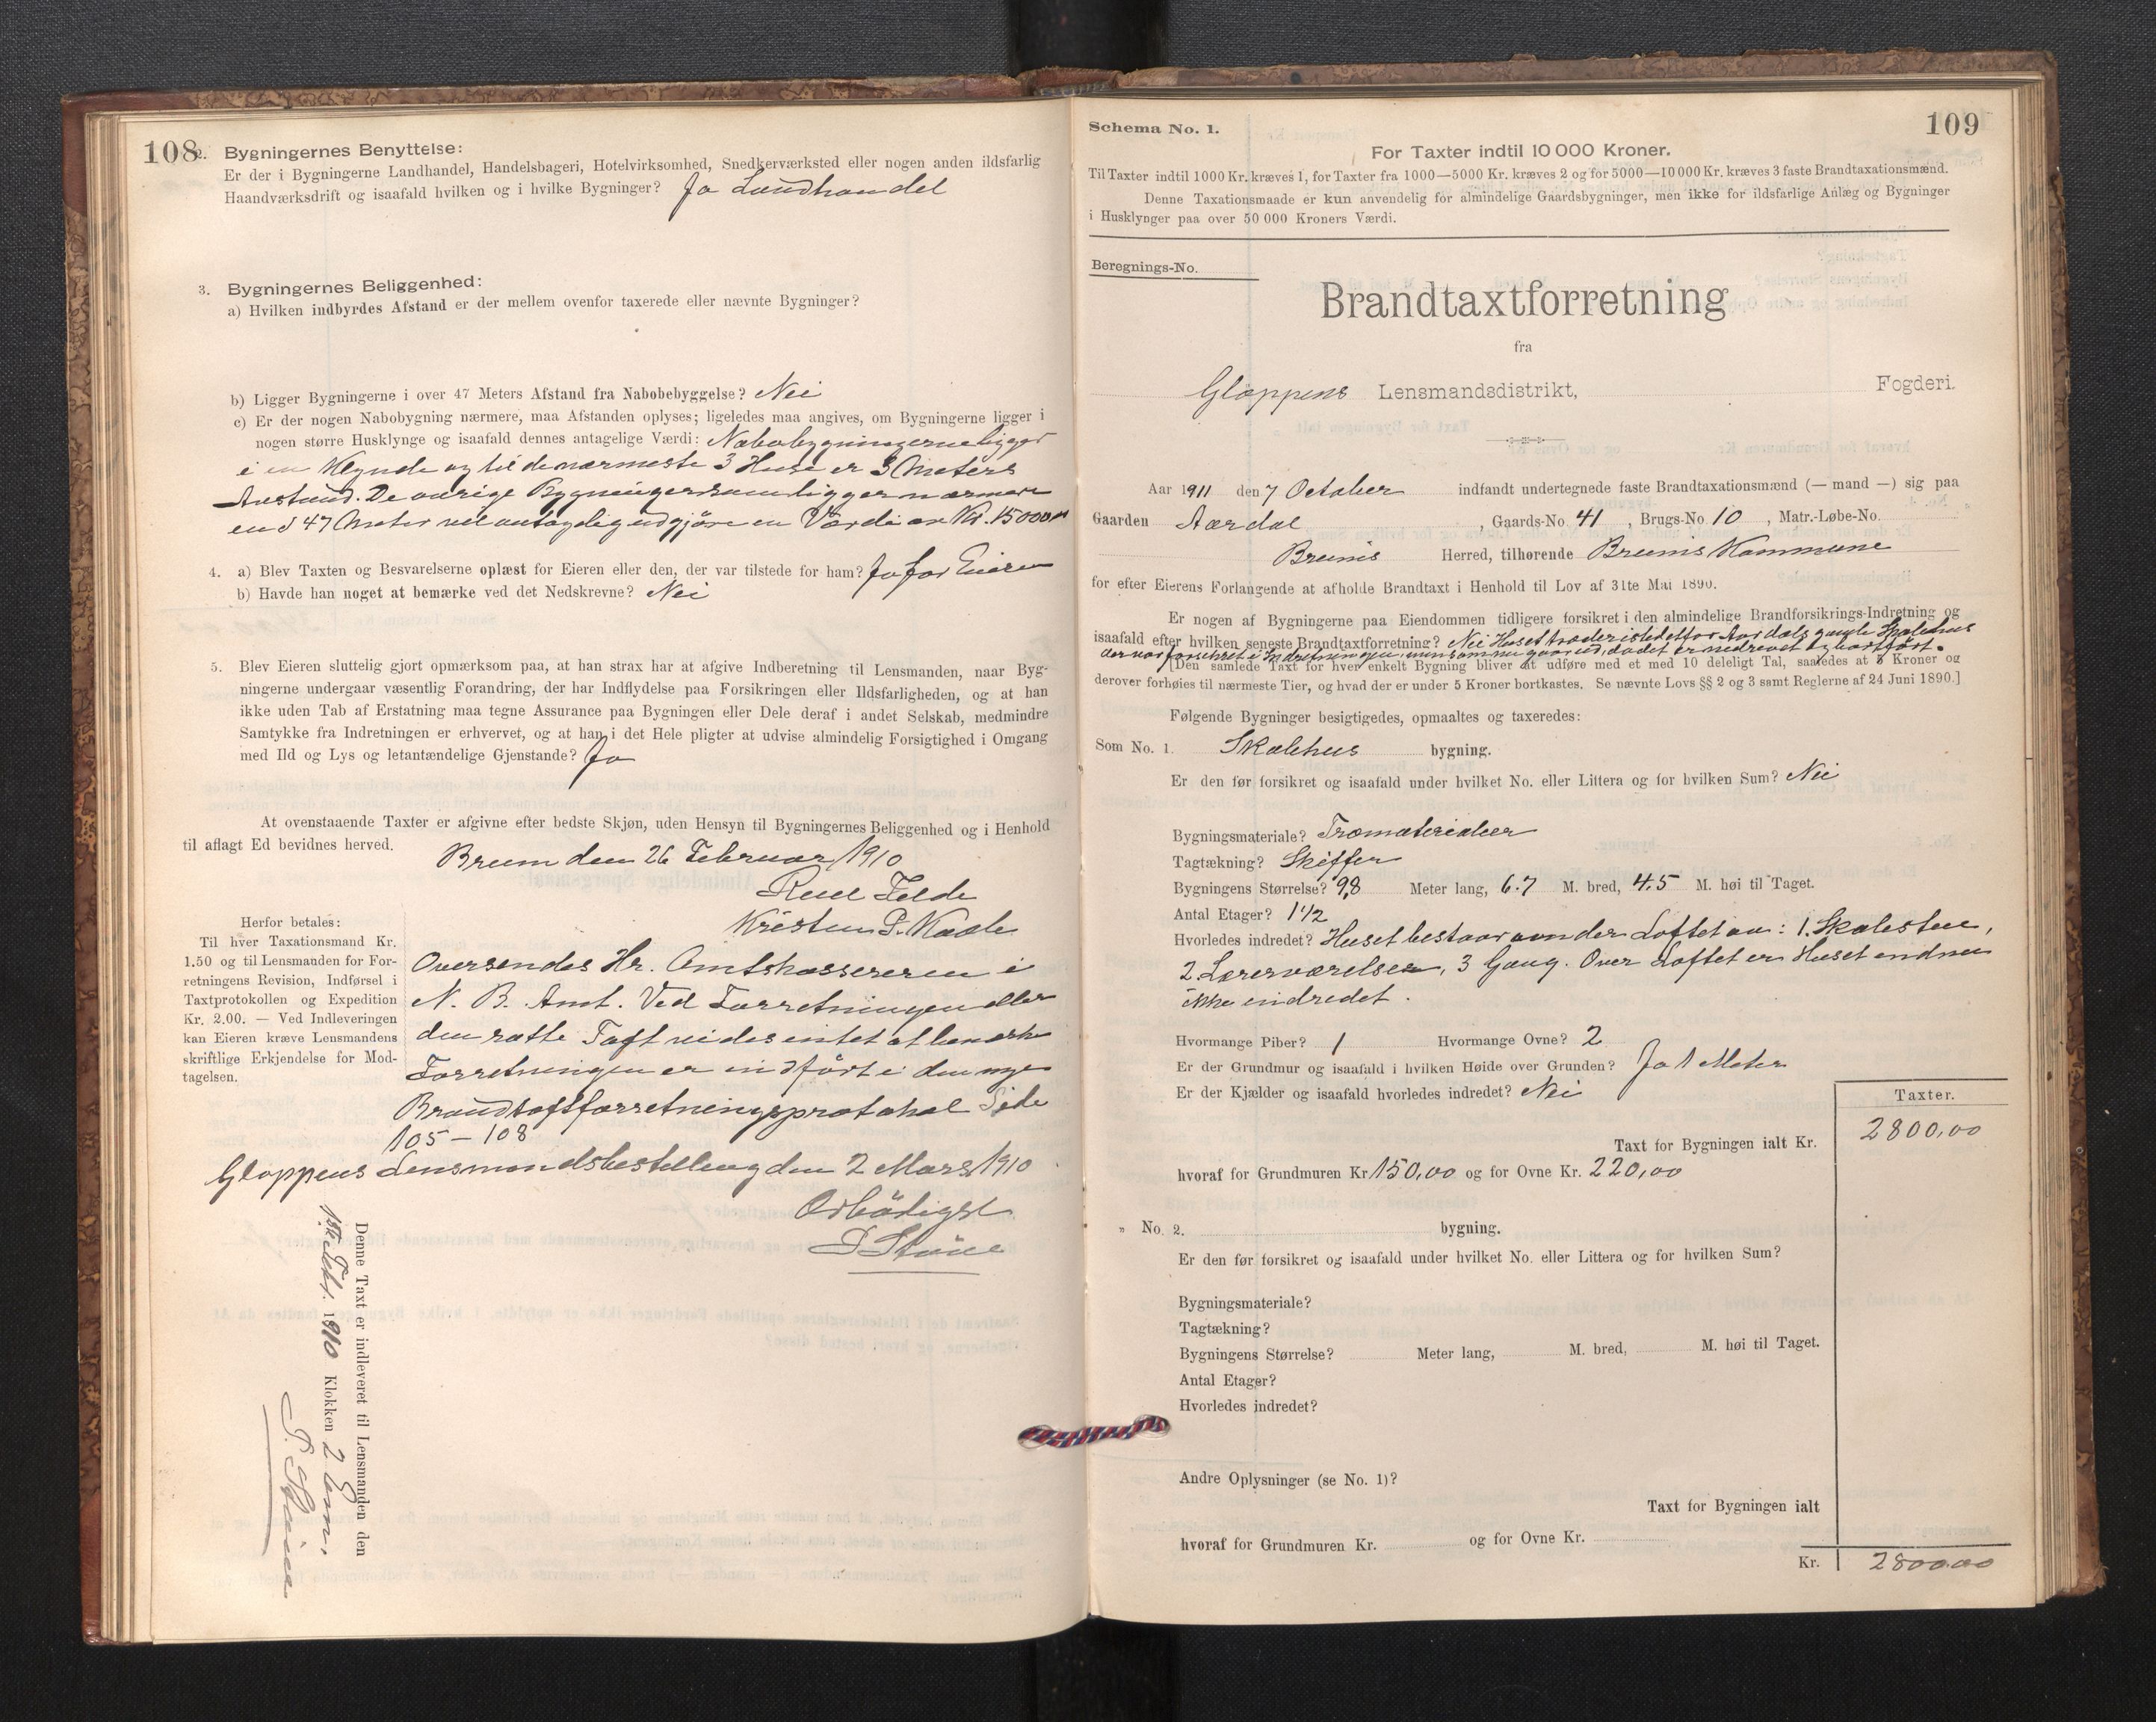 108
2. Bygningernes Benyttelse:
Er der i Bygningerne Landhandel, Handelsbageri, Hotelvirksomhed, Snedkerværksted eller nogen anden ildsfarlig
Haandværksdrift og isaafald hvilken og i hvilke Bygninger? Ja Landhandel
3. Bygningernes Beliggenhed:
a) Hvilken indbyrdes Afstand er der mellem ovenfor taxerede eller nævnte Bygninger?
b) Ligger Bygningerne i over 47 Meters Afstand fra Nabobebyggelse? Nei
c) Er der nogen Nabobygning nærmere, maa Afstanden oplyses; ligeledes maa angives, om Bygningerne ligger i
nogen større Husklynge og isaafald dennes antagelige Værdi: Nabobygningerne ligger
i en Klynde og til de nærmeste 3 Huse er 3 Meters
Avstand. De øvrige Bygninger som ligger nærmere
end 47 Meter vil antagelig udgjøre en Værdi av Kr. 15000
4. a) Blev Taxten og Besvarelserne oplæst for Eieren eller den, der var tilstede for ham? Ja for Eieren
b) Havde han noget at bemærke ved det Nedskrevne? Nei
5. Blev Eieren sluttelig gjort opmærksom paa, at han strax har at afgive Indberetning til Lensmanden, naar Byg-
ningerne undergaar væsentlig Forandring, der har Indflydelse paa Forsikringen eller Ildsfarligheden, og at han
ikke uden Tab af Erstatning maa tegne Assurance paa Bygningen eller Dele deraf i andet Selskab, medmindre
Samtykke fra Indretningen er erhvervet, og at han i det Hele pligter at udvise almindelig Forsigtighed i Omgang
med Ild og Lys og letantændelige Gjenstande? Ja
At ovenstaaende Taxter er afgivne efter bedste Skjøn, uden Hensyn til Bygningernes Beliggenhed og i Henhold
til aflagt Ed bevidnes herved.
Breum den 26 Februar 1910
Felde
Kristen P.
Herfor betales:
Til hver Taxationsmand Kr.
1.50 og til Lensmanden for For-
retningens Revision, Indførsel i
Taxtprotokollen og Expedition
Kr. 2.00. — Ved Indleveringen
kan Eieren kræve Lensmandens
skriftlige Erkjendelse for Mod-
tagelsen.
Oversendes Hr. Amtskassereren i
N. B. Amt. Ved Forretningen eller
den satte Taxt vides intet at bemærke
Forretningen er indført i den nye
Brandtaxtforretningsprotokol Side
105 – 108
Gloppens Lensmandsbestilling den 2 Mars 1910
Ærbødigst
Denne Taxt er indleveret til Lensmanden den
1910 Klokken 2 Em.
Schema No. 1.
109
For Taxter indtil 10 000 Kroner.
Til Taxter indtil 1000 Kr. kræves 1, for Taxter fra 1000—5000 Kr. kræves 2 og for 5000—10000 Kr. kræves 3 faste Brandtaxationsmænd.
Denne Taxationsmaade er kun anvendelig for almindelige Gaardsbygninger, men ikke for ildsfarlige Anlæg og Bygninger
i Husklynger paa over 50 000 Kroners Værdi.
Beregnings-No.
Brandtaxtforretning
fra
Gloppens Lensmandsdistrikt, Fogderi.
Aar 1911 den 7 October indfandt undertegnede faste Brandtaxationsmænd (— mand —) sig paa
Gaarden Aardal, Gaards-No. 41, Brugs-No. 10, Matr.-Løbe-No.
Breums Herred, tilhørende Breums Kommune
for efter Eierens Forlangende at afholde Brandtaxt i Henhold til Lov af 31te Mai 1890.
Er nogen af Bygningerne paa Eiendommen tidligere forsikret i den almindelige Brandforsikrings-Indretning og
isaafald efter hvilken seneste Brandtaxtforretning? Nei Huset træder istedetfor Aardals gamle Skolehus
der var forsikret i Indretningen, men som nu gaar ud, da det er nedrevet og bortført.
[Den samlede Taxt for hver enkelt Bygning bliver at udføre med et med 10 deleligt Tal, saaledes at 5 Kroner og
derover forhøies til nærmeste Tier, og hvad der er under 5 Kroner bortkastes. Se nævnte Lovs §§ 2 og 3 samt Reglerne af 24 Juni 1890.]
Følgende Bygninger besigtigedes, opmaaltes og taxeredes:
Som No. 1. Skolehus bygning.
Er den før forsikret og isaafald under hvilket No. eller Littera og for hvilken Sum? Nei
Bygningsmateriale? Træmaterialier
Tagtækning? Skiffer
Bygningens Størrelse? 9,8 Meter lang, 6.7 M. bred, 4.5 M. høi til Taget.
Antal Etager? 1 1/2
Hvorledes indredet? Huset bestaar under Loftet av: 1. Skolestue,
2. Lærerværelse, 3 Gang. Over Loftet er Huset endnu
ikke indredet.
Hvormange Piber? 1 Hvormange Ovne? 2
Er der Grundmur og isaafald i hvilken Høide over Grunden? Ja 1 Meter
Er der Kjælder og isaafald hvorledes indredet? Nei
Taxter.
Taxt for Bygningen ialt Kr. 2800,00
hvoraf for Grundmuren Kr. 150,00 og for Ovne Kr. 220,00
„ No. 2. bygning.
Er den før forsikret og isaafald under hvilket No. eller Littera og for hvilken Sum?
Bygningsmateriale?
Tagtækning?
Bygningens Størrelse? Meter lang, M. bred, M. høi til Taget.
Antal Etager?
Hvorledes indredet?
Andre Oplysninger (se No. 1)?
Taxt for Bygningen ialt
hvoraf for Grundmuren Kr. og for Ovne Kr.
Kr. 2800.00